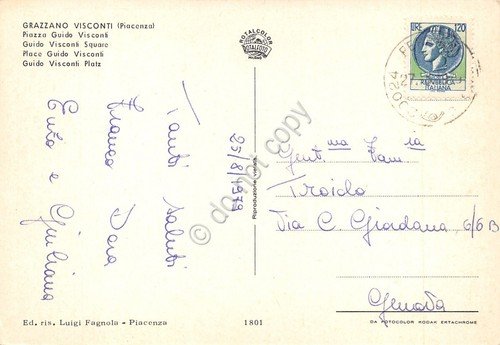 GRAZZANO VISCONTI (Piacenza)
Piazza Guido Visconti
Guido Visconti Square
Place Guido Visconti
Guido Visconti Platz
ROTALCOLOR
ROTALFOTO
MILANO
LIRE 120
REPUBBLICA
ITALIANA
25/8/1979
Tanti saluti
Franco Dora
Enzo e Giuliana
Riproduzione vietata
Gent.ma Fam.ia
Troiolo
Via C. Giordana 6/6 B
Genova
Ed. ris. Luigi Fagnola - Piacenza
1801
DA FOTOCOLOR KODAK EKTACHROME
do not copy